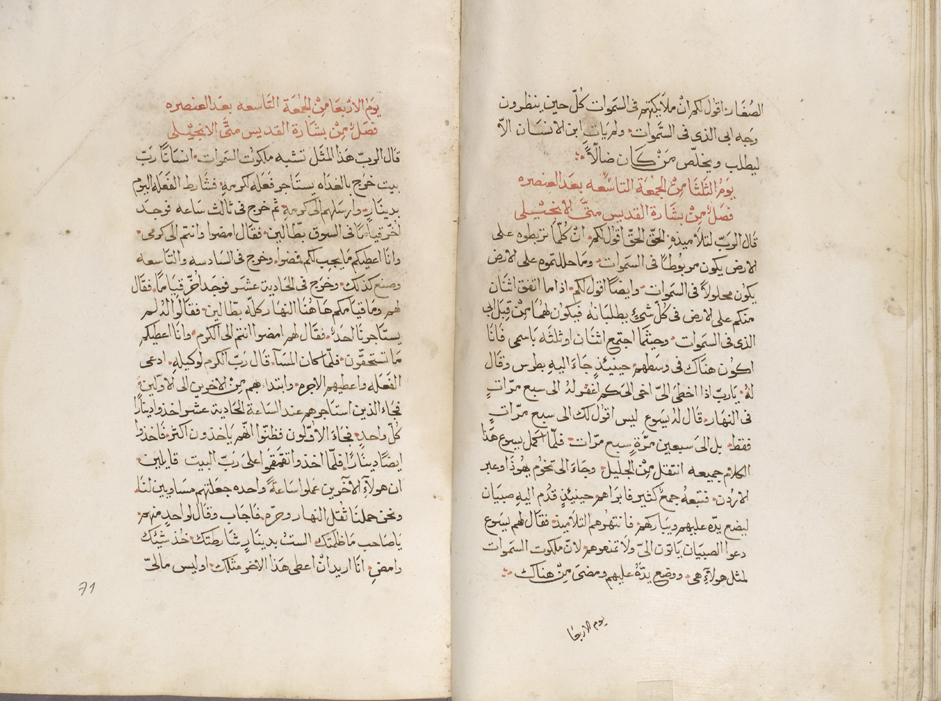 الصغار اقول لكم ان ملايكتهم في السموات كلّ حين ينظرون
وجه ابي الذي في السموات ولم يات ابن الانسان الاّ
ليطلب ويخلّص من كان ضالّاً
يوم الثلثا من الجمعة التاسعه بعد العنصره
فصل من بشارة القديس متّى الانجيلي
قال الربّ لتلاميذه الحق الحق اقول لكم انّ كلّما تربطوه على
الارض يكون مربوطاً في السموات وما حللتموه على الارض
يكون محلولاً في السموات وايضاً اقول لكم اذا ما اتفق اثنان
منكم على الارض في كلّ شيء يطلبانه فيكون لهما من قبل ابي
الذي في السموات وحيثما اجتمع اثنان او ثلثه باسمي فانا
اكون هناك في وسطهم حينيذٍ جاء اليه بطرس وقال
له يا ربّ اذا اخطى الى اخي الى كم اغفر له الى سبع مرّاتٍ
في النهار قال له يسوع ليس اقول لك الى سبع مرّاتٍ
فقط بل الى سبعين مرّة سبع مرّات فلمّا اكمل يسوع هذا
الكلام جميعه انتقل من الجليل وجاء الى تخوم يهوذا وعبر
الاردن فتبعه جمع كثير فابراهم حينيذٍ قدم اليه صبيان
ليضع يدّه عليهم ويباركهم فانتهرهم التلاميذ فقال لهم يسوع
دعوا الصبيان ياتون اليّ ولا تمنعوهم لانّ ملكوت السموات
لمثل هولاء هي ووضع يدّه عليهم ومضى من هناك
يوم الاربعا
يوم الاربعا من الجمعة التاسعه بعد العنصره
فصل من بشارة القديس متّى الانجيلي
قال الربّ هذا المثل تشبه ملكوت السموات انساناً ربّ
بيت خرج بالغداه يستاجر فعله لكرمه فشارط الفعله اليوم
بدينارٍ وارسلهم الى كرمه ثم خرج في ثالث ساعه فوجد
اخر قياماً في السوق بطّالين فقال امضوا وانتم الى كرمي
وانا اعطيكم ما يجب لكم فمضوا وخرج في السادسه والتاسعه
وصنع كذلك وخرج في الحادية عشر فوجد اخر قياماً فقال
لهم وما قيامكم هاهنا النهار كلّه بطّالين فقالوا له لم
يستاجرنا احد فقال لهم امضوا انتم الى الكرم وانا اعطيكم
ما تستحقّون فلمّا كان المسآ قال ربّ الكرم لوكيله ادعي
الفعله واعطيهم الاجره وابتدا بهم من الاخرين الى الاولين
فجاء الذين استاجرهم عند الساعة الحادية عشر اخذوا ديناراً
كلّ واحدٍ فجاء الاوّلون فظنّوا انّهم ياخذون اكثر فاخذوا
ايضاً ديناراً فلمّا اخذوا تقمقموا على ربّ البيت قايلين
ان هولاء الاخرين عملوا ساعةً واحده جعلتهم مساويين لنا
ونحن حملنا ثقل النهار وحرّه فاجاب وقال لواحدٍ منهم
يا صاحب ما ظلمتك الست بدينارٍ شارطتك خذ شيك
وامضِ انا اريد ان اعطي هذا الاخر مثلك اوليس ما لي
71